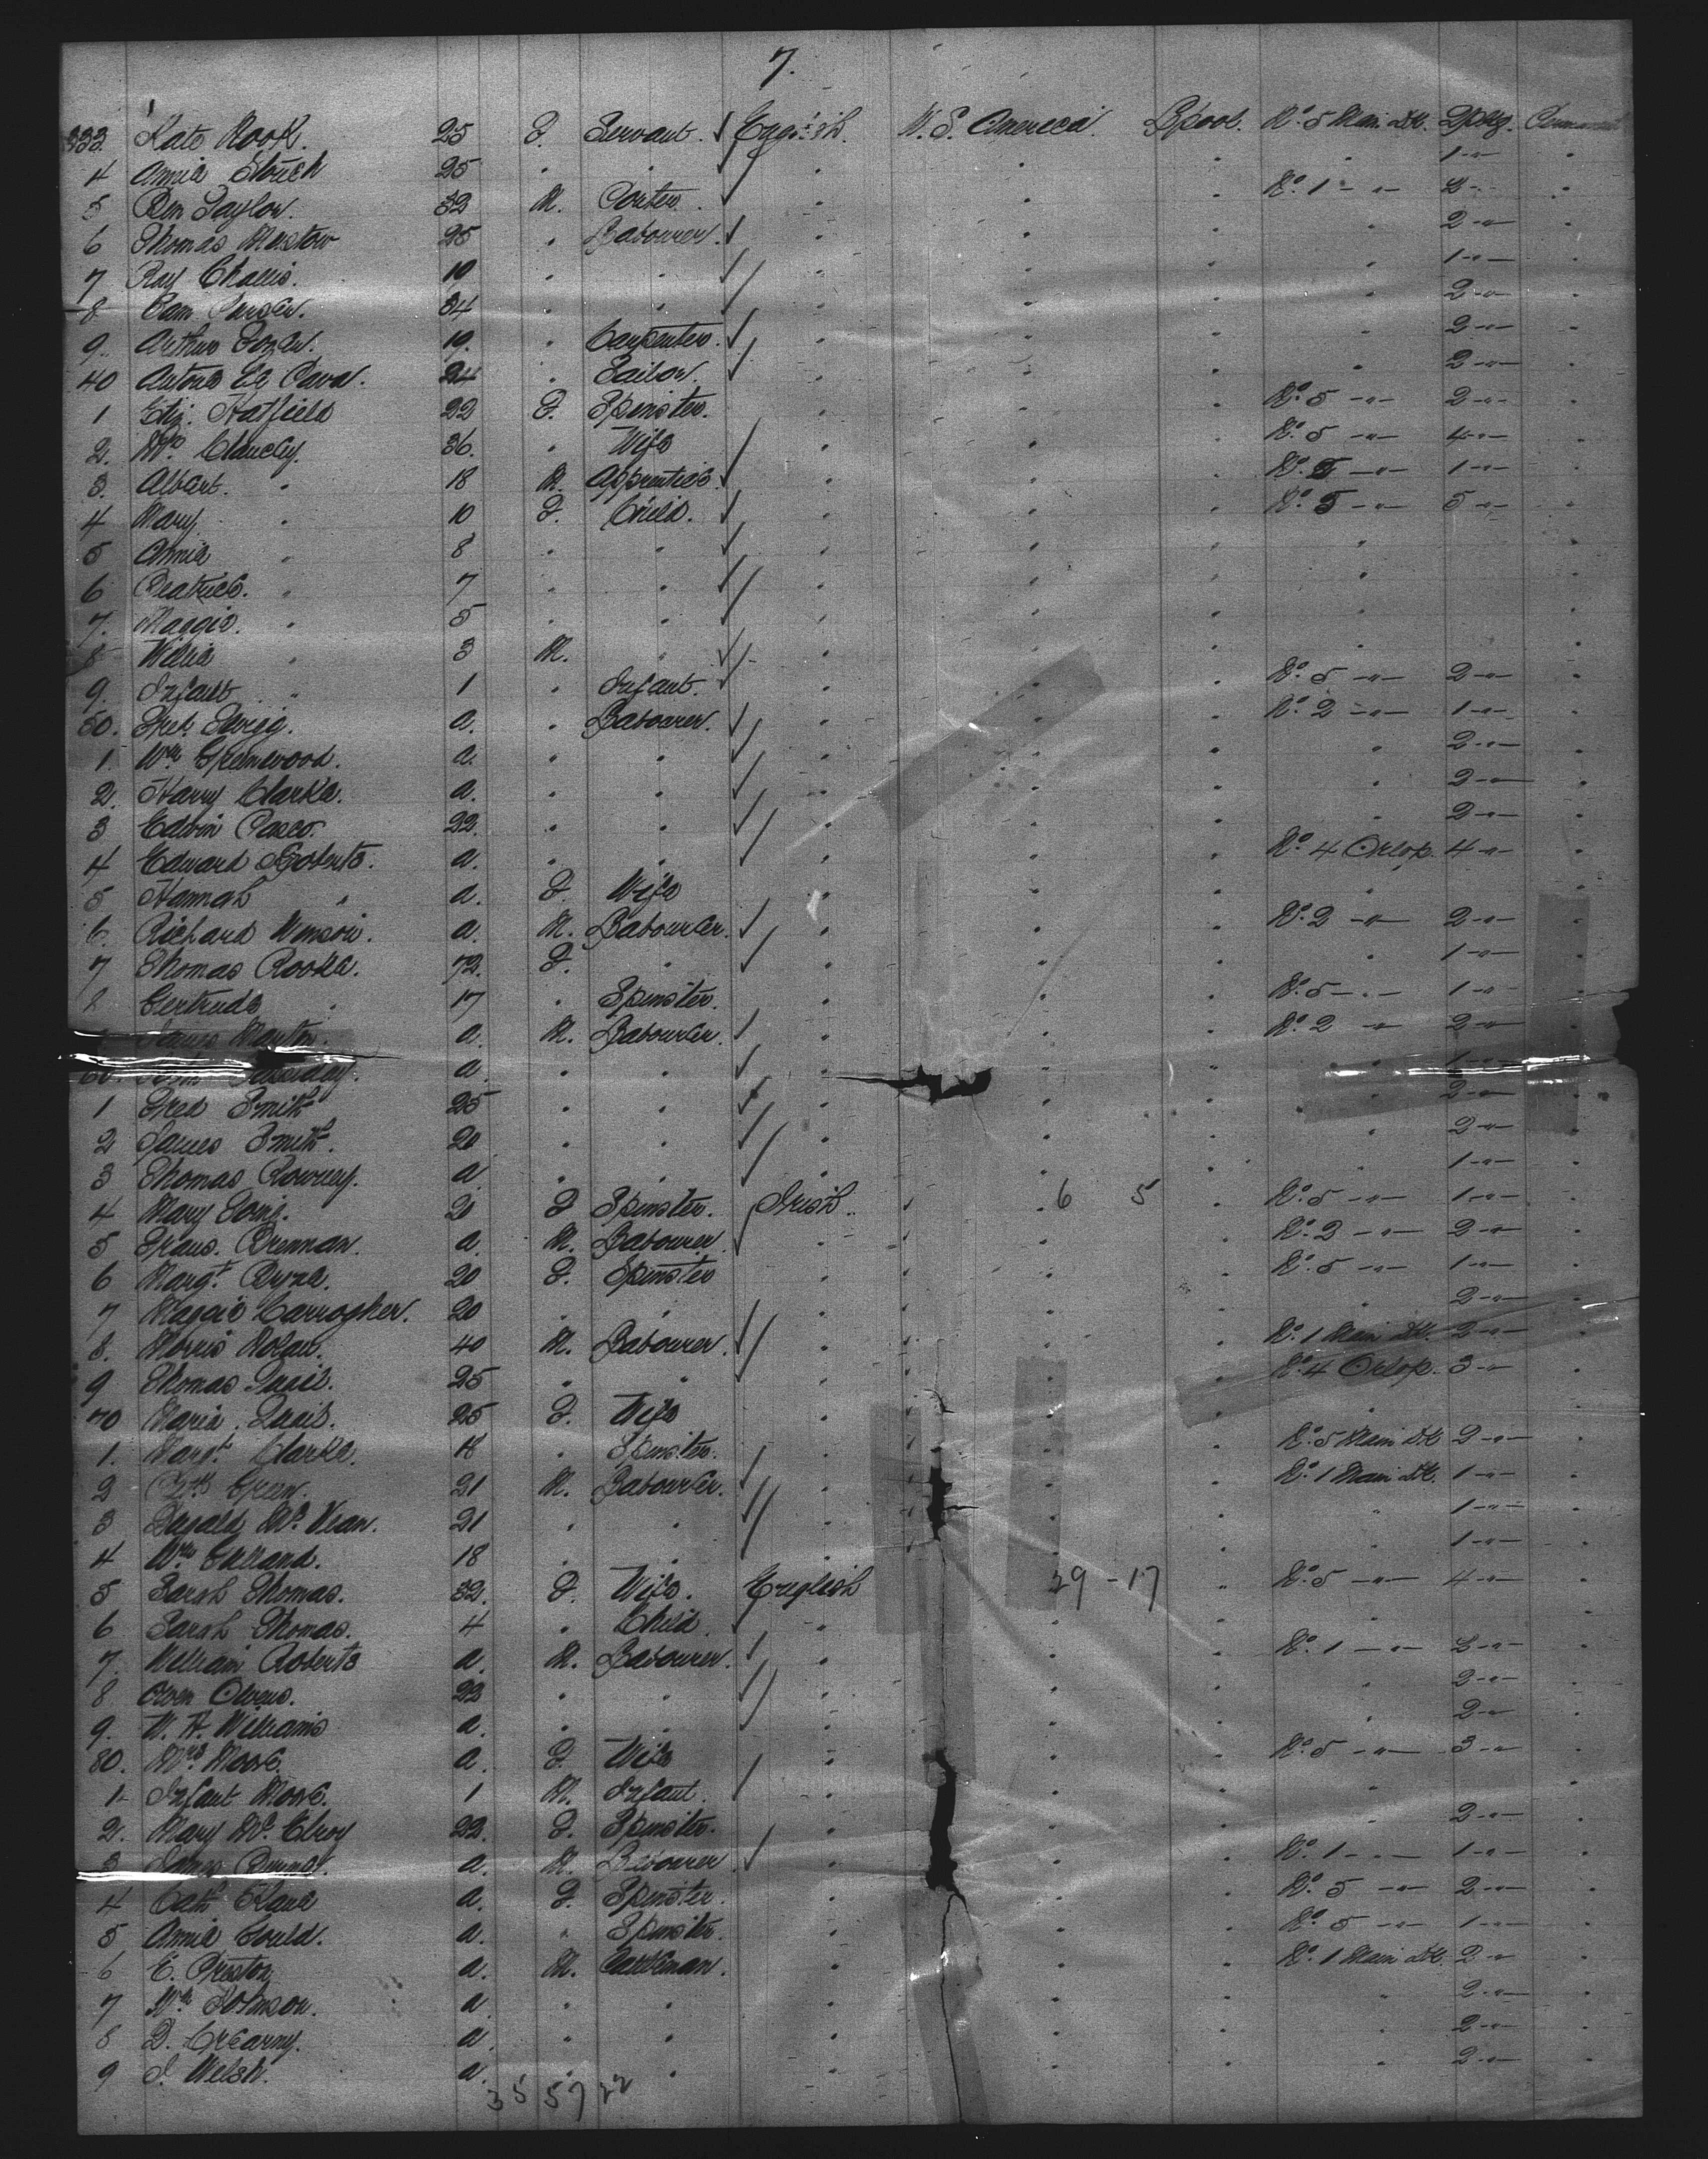 7.
333. Kate Rook. 25 F. Servant. English. U. S. America. L'pool. No. 5 Main Dk. 2 pkgs. Permanent
4 Annie 25 " " " " " " 1 - " - "
5 Ben Taylor. 32 M. Porter. " " " No. 1 - " - "
6 Thomas 25 " Labourer. " " " " 2 - " - "
7 Ray Challis. 19 " " " " " " 1 - " - "
8 34 " " " " " " 2 - " - "
9. Arthur 19. " Carpenter. " " " " 2 - " - "
40 24 " Sailor. " " " " 2 - " - "
1 Eliz. Hatfield 22 F. Spinster. " " " No. 5 - " - 2 - " - "
2. Mrs. Clancey. 36. " Wife " " " No. 5 - " - 4 - " - "
3. Albert. " 18 M. Apprentice. " " " No. 5 - " - 1 - " - "
4 Mary " 10 F. Child. " " " No. 5 - " - 5 - " - "
5 Annie " 8 " " " " " " "
6 Beatrice. " 7 " " " " " " "
7. Maggie. " 5 " " " " " "
8 Willie " 3 M. " " " " "
9. Infant " 1 " Infant. " " " No. 5 - " - 2 - " - "
50. Fred. a. " Labourer. " " " No. 2 - " - 1 - " - "
1. Wm. Greenwood. a. " " " " " " 2 - " - "
2. Harry Clarke. a. " " " " " " 2 - " - "
3 Edwin Pasco. 22. " " " " " " 2 - " - "
4 Edward Roberts. a. " " " " " No. 4 Orlop. 4 - " - "
5 Hannah " a. F. Wife " " " " "
6. Richard a. M. Labourer. " " " No. 2 - " - 2 - " - "
7 Thomas Rooke. 72. F. " " " " " 1 - " - "
8 Gertrude " 17 " Spinster. " " " No. 5 - " - 1 - " - "
James a. M. Labourer. " " " No. 2 - " - 2 - " - "
60. a. " " " " " " 1 - " - "
1 Fred Smith 25 " " " " " " 2 - " - "
2 James Smith. 20 " " " " " " 2 - " - "
3 Thomas a. " " " " " " 1 - " - "
4 Mary F Spinster. Irish. " 6 5 " No. 5 - " - 1 - " - "
5 Brennan. a. M. Labourer. " " " No. 2 - " - 2 - " - "
6 Margt. 20 F. Spinster " " " No. 5 - " - 1 - " - "
7 Maggie Carrogher. 20 " " " " " " 2 - " - "
8. Morris 40 M. Labourer. " " " No. 1 Main Dk. 2 - " - "
9 Thomas Quail. 25 " " " " " No. 4 Orlop. 3 - " - "
70 Maria. Quail. 25 F. Wife " " " " "
1. Margt. Clarke. 18 " Spinster. " " " No. 5 Main Dk 2 - " - "
2 Green. 21 M. Labourer. " " " No. 1 Main Dk. 1 - " - "
3 21 " " " " " " 1 - " - "
4 Wm. 18 " " " " " " 1 - " - "
5 Sarah Thomas. 32. F. Wife. English 29 - 17 " No. 5 - " - 4 - " - "
6 Sarah Thomas. 4 " Child. " " " " "
7. William Roberts a. M. Labourer. " " " No. 1 - " - "
8 Owen Owens. 22 " " " " " " 2 - " - "
9. W. H. Williams a. " " " " " " 2 - " - "
80. Mrs. Moore. a. F. Wife " " " No. 5 - " - 3 - " - "
1. Infant Moore. 1 M. Infant. " " " " "
2. Mary McElroy 22. F. Spinster. " " " " 2 - " - "
3 James a. M. Labourer. " " " No. 1 - " - 1 - " - "
4 Cath. Kane a. F. Spinster. " " " No. 5 - " - 2 - " - "
5 Annie Gould. a. " Spinster. " " " No. 5 - " - 1 - " - "
6 E. Preston a. M. Cattleman. " " " No. 1 Main Dk. 2 - " - "
7 Wm. Johnson. a. " " " " " " 2 - " - "
8 D. a. " " " " " " 2 - " - "
9 J. Welsh. a. " " " " " " 2 - " - "
35 57 22